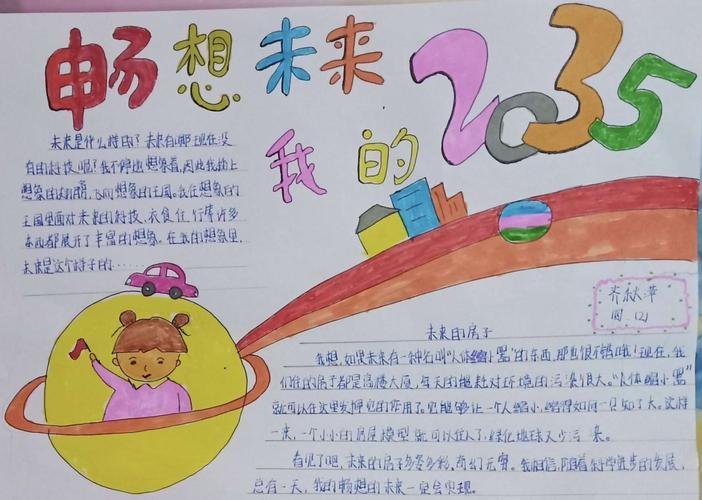 畅想未来
我的
2035
未来是什么样的？未来有哪些现在没
有的科技呢？我不停地想象着，因此我插上
想象的翅膀，飞向想象的王国。我在想象的
王国里面对未来的科技、衣食住行等许多
东西都展开了丰富的想象。在我的想象里，
未来是这个样子的……
齐秋萍
四(2)
未来的房子
我想，如果未来有一种名叫“人体缩小器”的东西，那也很不错哦！现在，我
们住的房子都是高楼大厦，与天的 对环境的污染很大。“人体缩小器”
就可以在这里发挥它的作用了。它能够让一个人缩小，缩得如同一只蚂蚁大。这样
一来，一个小小的房屋模型就可以住人了，绿化地球又少污染。
看见了吧，未来的房子多姿多彩，奇幻无穷。我相信，随着科学进步的发展，
总有一天，我的畅想的未来一定会实现。